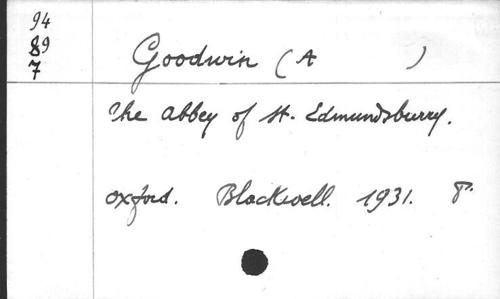 94
89
7
Goodwin (A )
The Abbey of St. Edmundsburry.
Oxford. Blackwell. 1931. 8°.